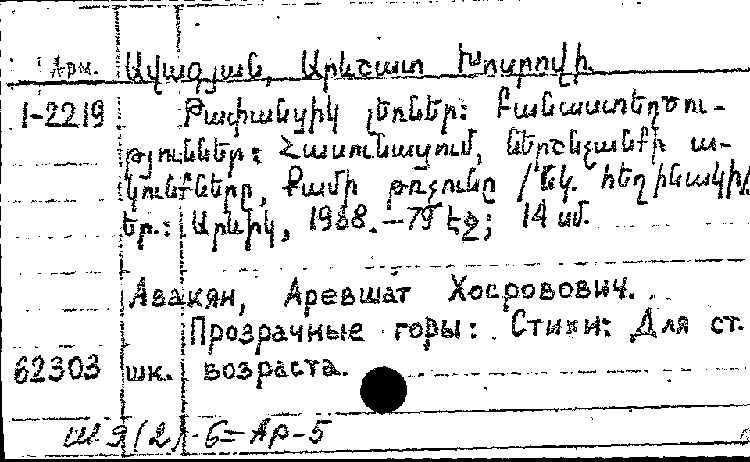 Арм. Ավագյան, Արևշատ Խոսրովի.
1-2219 Թափանցիկ լեռներ: Բանաստեղծու-
թյուններ: Հասունացում, ներշնչանքի ա-
կունքները, Քամի թռչունը / նկ. հեղինակի/
Եր.: Արևիկ, 1988. – 79 էջ; 14 սմ.
Авакян, Аревшат Хосровович.
Прозрачные горы: Стихи: Для ст.
62303 шк. возраста.
(2)-6=АР-5